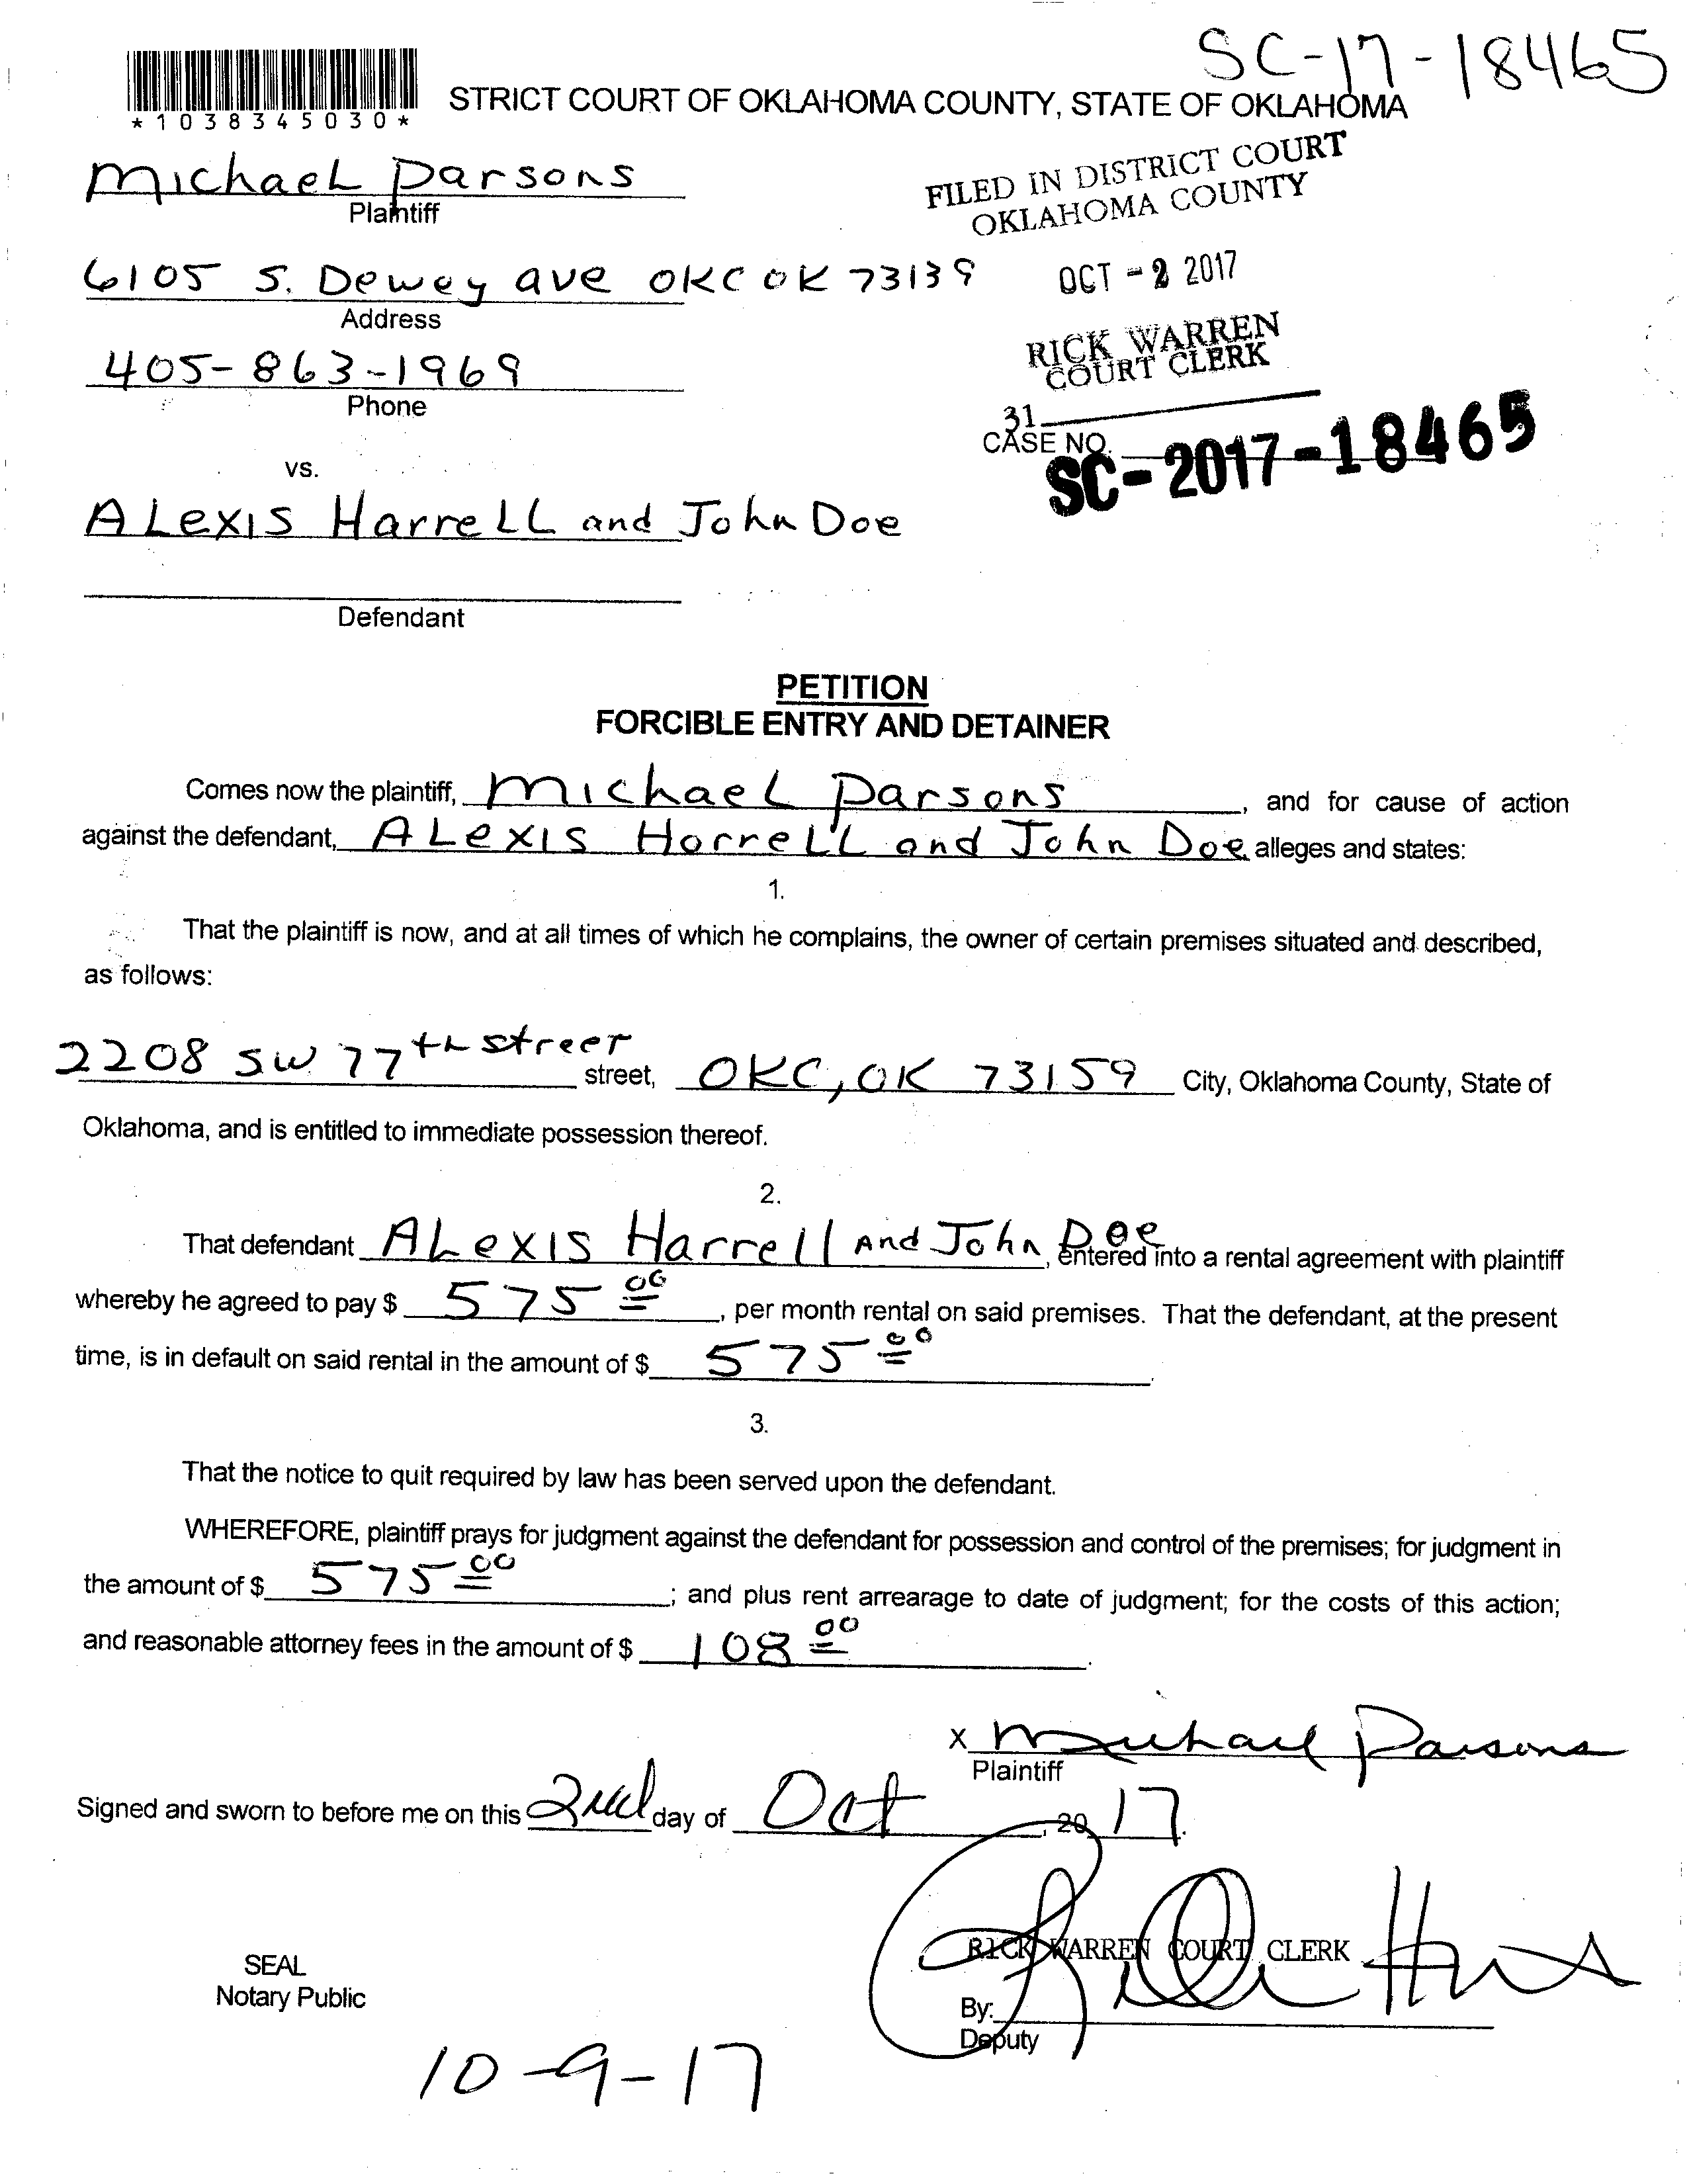 SC-17-18465
*1038345030*
STRICT COURT OF OKLAHOMA COUNTY, STATE OF OKLAHOMA
Michael Parsons
Plaintiff
FILED IN DISTRICT COURT
OKLAHOMA COUNTY
6105 S. Dewey ave OKC OK 73139
Address
OCT -2 2017
405-863-1969
Phone
RICK WARREN
COURT CLERK
31
CASE NO.
SC-2017-18465
vs.
ALexis HarreLL and John Doe
Defendant
PETITION
FORCIBLE ENTRY AND DETAINER
Comes now the plaintiff, MichaeL Parsons, and for cause of action
against the defendant, ALexis HarreLL and John Doe alleges and states:
1.
That the plaintiff is now, and at all times of which he complains, the owner of certain premises situated and described,
as follows:
2208 SW 77th street street, OKC, OK 73159 City, Oklahoma County, State of
Oklahoma, and is entitled to immediate possession thereof.
2.
That defendant ALexis Harrell And John Doe, entered into a rental agreement with plaintiff
whereby he agreed to pay $ 575 00, per month rental on said premises. That the defendant, at the present
time, is in default on said rental in the amount of $ 575 00.
3.
That the notice to quit required by law has been served upon the defendant.
WHEREFORE, plaintiff prays for judgment against the defendant for possession and control of the premises; for judgment in
the amount of $ 575 00; and plus rent arrearage to date of judgment; for the costs of this action;
and reasonable attorney fees in the amount of $ 108 00.
X Michael Parsons
Plaintiff
Signed and sworn to before me on this 2nd day of Oct, 20 17.
RICK WARREN COURT CLERK
SEAL
Notary Public
By:
Deputy
10-9-17